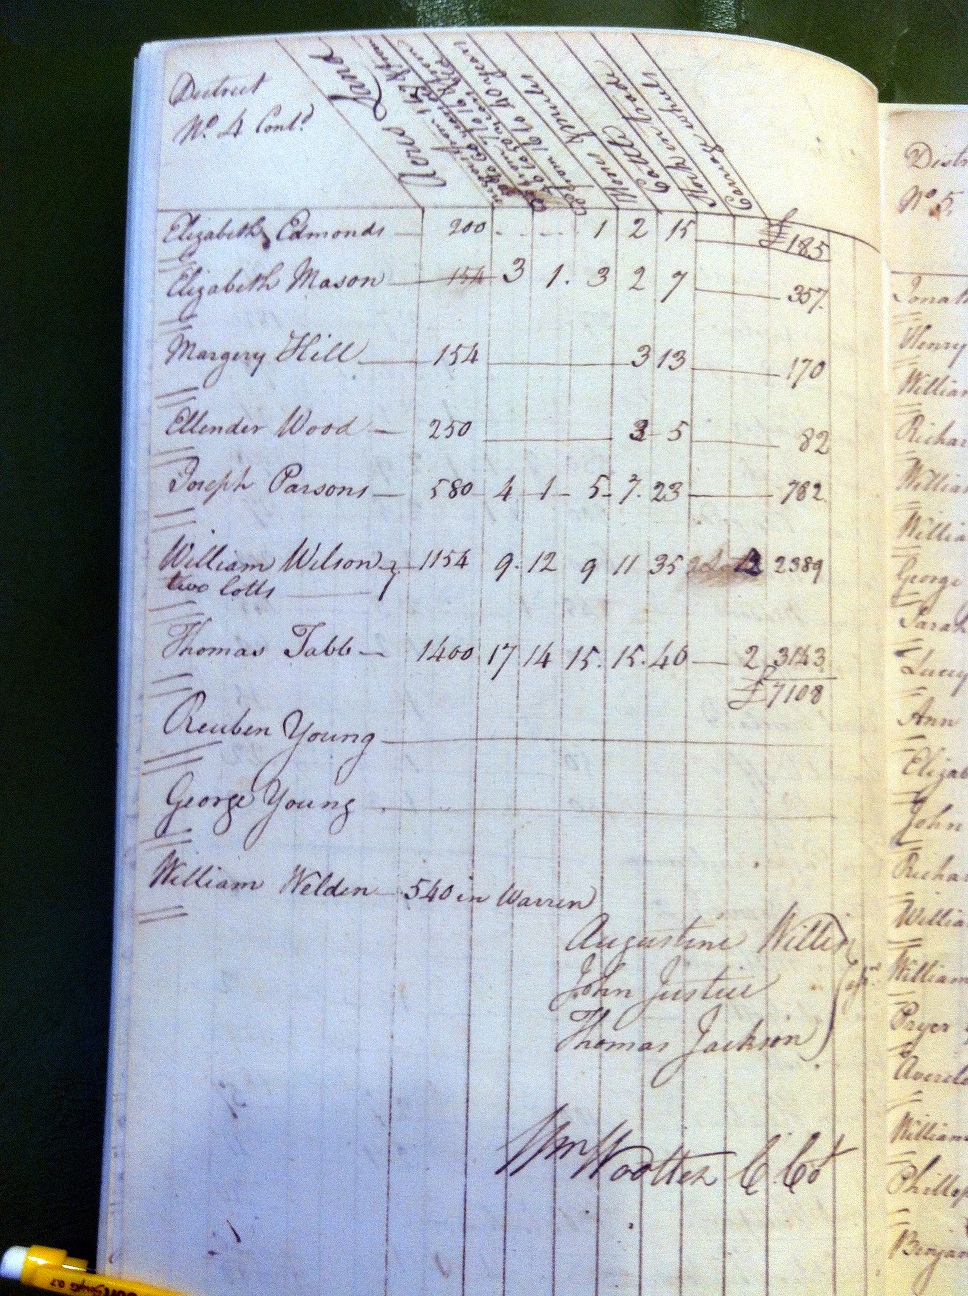 District
No. 4 Contd
Acres Land
from 16 to 40 years
Horses & mules
Cattle
Stock in trade
Carriage wheels
Elizabeth Edmonds — 200 - - - - 1 2 15 £185
Elizabeth Mason — 154 3 1. 3 2 7 — 357
Margery Hill — 154 — 3 13 — 170
Ellender Wood — 250 — 3 5 — 82
Joseph Parsons — 580 4 1 5 7. 23 — 782
William Wilson } 1154 9. 12 9 11 35 2 2389
two lotts
Thomas Tabb — 1400 17 14 15. 15. 40 — 2 3143
£7108
Reuben Young
George Young
William Welden — 540 in Warren
Augustine Willis
John Justice
Thomas Jackson
Wm Wootten C. Ct
Distr
No 5
Jonath
Henry
William
Richar
William
Willia
George
Sarah
Lucy
Ann
Elizab
John
Richar
Willia
William
Pryor
William
Phillip
Benjam